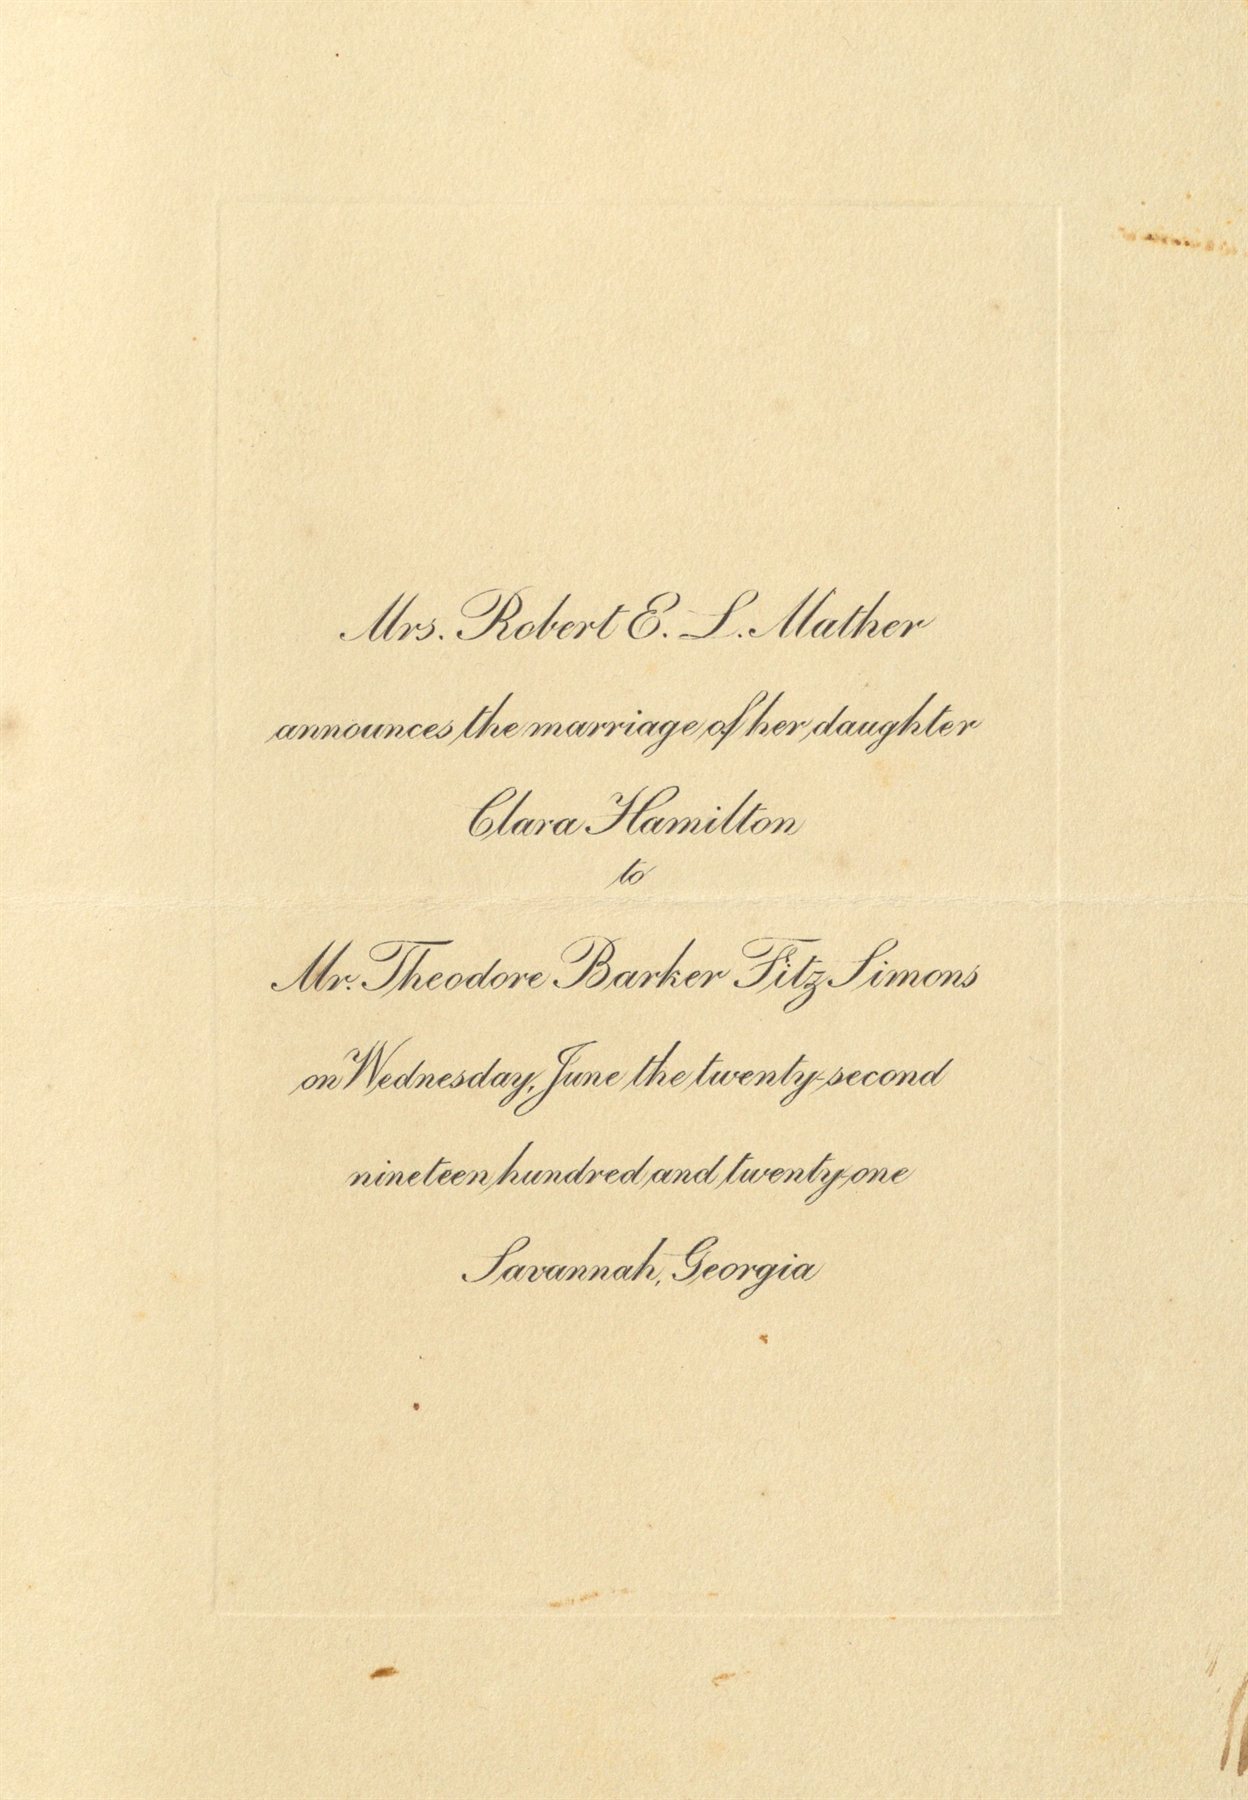 Mrs. Robert E. L. Mather
announces the marriage of her daughter
Clara Hamilton
to
Mr. Theodore Barker Fitz Simons
on Wednesday, June the twenty-second
nineteen hundred and twenty-one
Savannah, Georgia